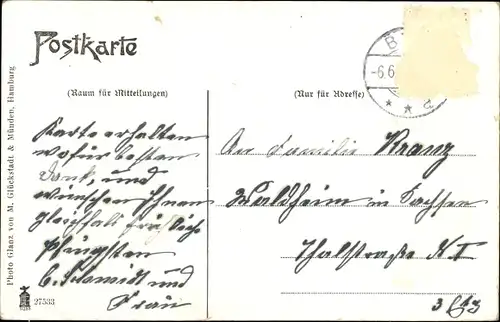 Postkarte
(Raum für Mitteilungen)
(Nur für Adresse)
-6.6
Karte erhalten
wofür besten
Dank, und
wünschen Ihnen
gleichfalls fröhliche
Pfingsten
C. Schmidt und
Frau
An Familie Kranz
Waldheim in Sachsen
Thalstraße
Photo Glanz von M. Glückstadt & Münden, Hamburg
27533